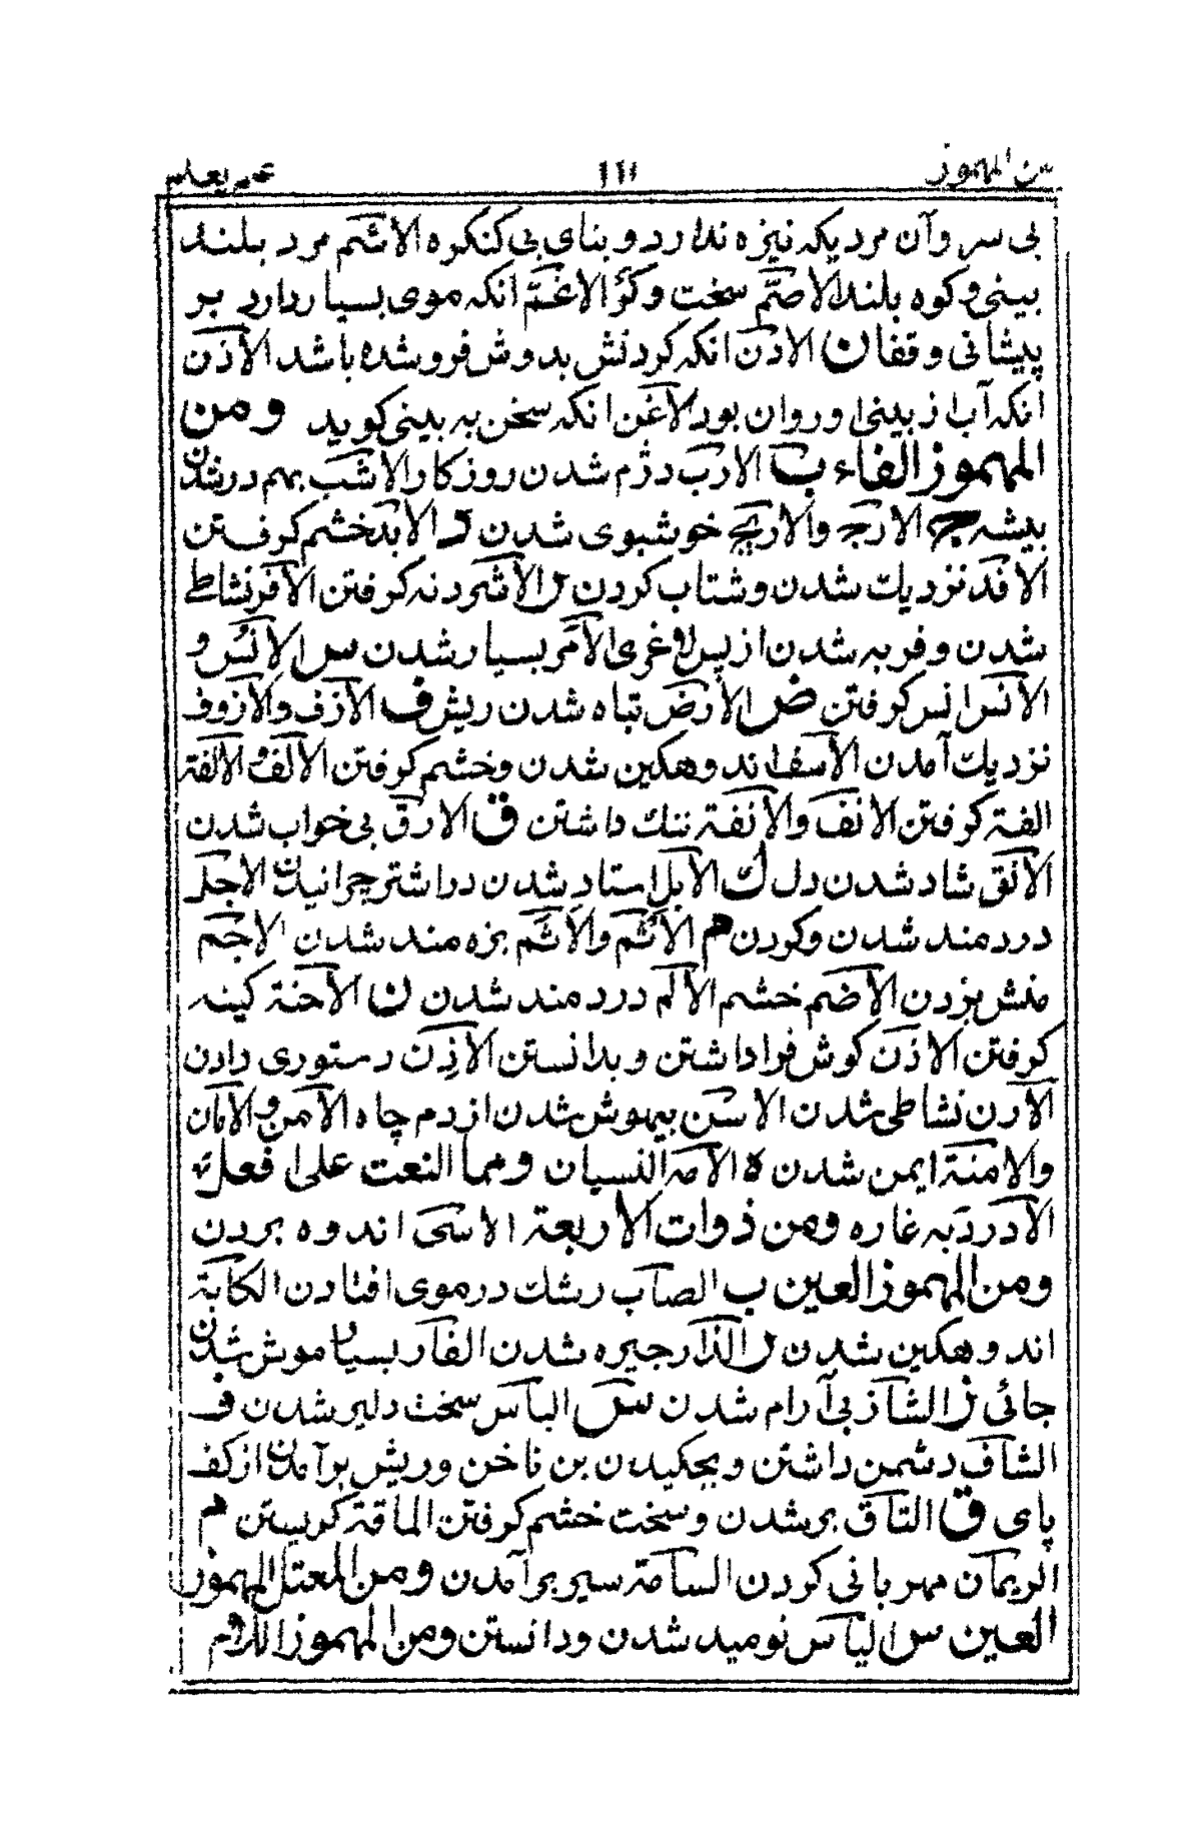 من المهموز ١١١ علم يعلم
بی سر و آن مردیکه نیزه ندارد و بنای بی کنکره الاشم مرد بلند
بینی و کوه بلند الاصم سخت و کر الاغم انکه موی بسیار دارد بر
پیشانی و قفا ن الادن انکه کردنش بدوش فرو شده باشد الاذن
انکه آب از بینی او روان بود الاغن انکه سخن به بینی کوید ومن
المهموز الفاء ب الارب دژم شدن روزکار الاشب بهم در شدن
بیشه ج الارج والاریج خوشبوی شدن د الابد خشم کرفتن
الافد نزدیك شدن و شتاب کردن ر الاشر دنه کرفتن الافر نشاط
شدن و فربه شدن از پس لاغری الامر بسیار شدن س الانس و
الانس انس کرفتن ض الارض تباه شدن ریش ف الازف والازوف
نزدیك آمدن الاسف اندوهکین شدن و خشم کرفتن الالف و الالفة
الفة کرفتن الانف والانفة ننك داشتن ق الارق بی خواب شدن
الانق شاد شدن دل ل الابل استاد شدن در اشتر چرانیدن الاجل
دردمند شدن و کردن م الاثم والاثم بزه مند شدن الاجم
منش بزدن الاضم خشم الالم دردمند شدن ن الاحنة کینه
کرفتن الاذن کوش فرا داشتن و بدانستن الاذن دستوری دادن
الارن نشاطی شدن الاسن بیهوش شدن از دم چاه الامن و الامان
والامنة ایمن شدن ه الامه النسیان ومما النعت علی افعل
الادر دبه غاره ومن ذوات الاربعة الاسی اندوه بردن
ومن المهموز العین ب الصآب رشك در موی افتادن الکآبة
اندوهکین شدن ر الذآر چیره شدن الفآر بسیار موش شدن
جائی ز الشآز بی آرام شدن س البأس سخت دلیر شدن ف
الشآف دشمن داشتن و بچکیدن بن ناخن و ریش برآمدن از کف
پای ق التآق بر شدن و سخت خشم کرفتن المأقة کریستن م
الریمان مهربانی کردن السآمة سیر برآمدن ومن المعتل المهموز
العین س الیأس نومید شدن و دانستن ومن المهموز اللام